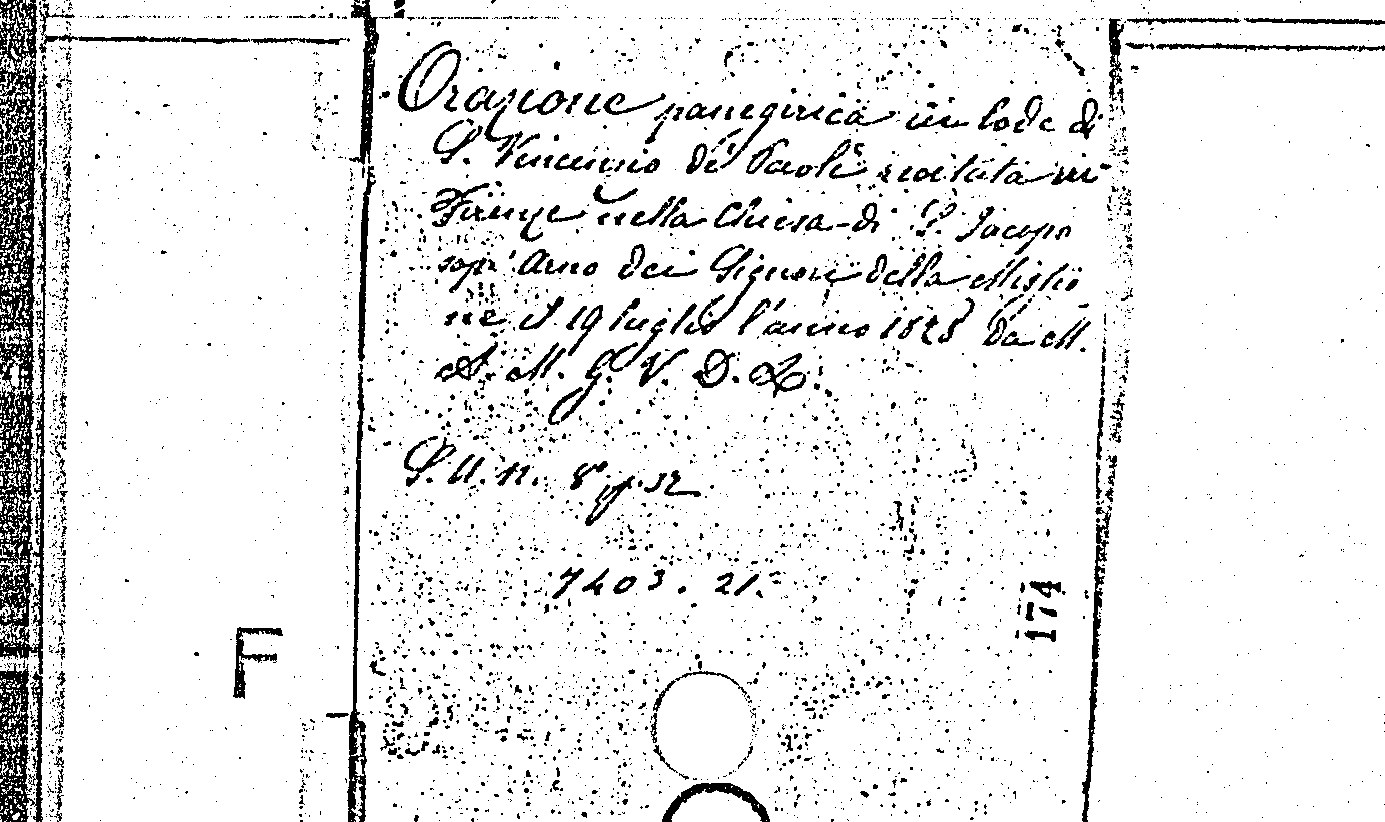 Orazione panegirica in lode di
S. Vincenzio de' Paoli recitata in
Firenze nella Chiesa di S. Jacopo
sopr' Arno dei Signori della Missio
ne il 19 luglio l'anno 1825 da M.
A. M. G. V. D. L.
S. U. N. 8° pp. 32
7403. 21.
174
F